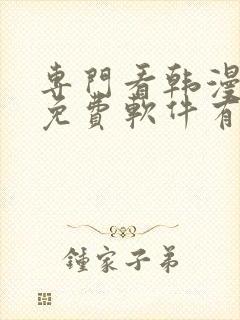 專門看韩漫
免費軟件有
鍾家子弟